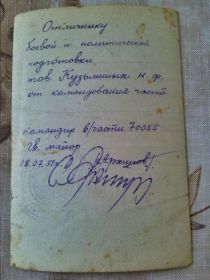 Отличнику
боевой и политической
подготовки
тов Кузьминых М. Ф.
от командования части
командир в/части 70055
Гв. майор
18.07.51г.